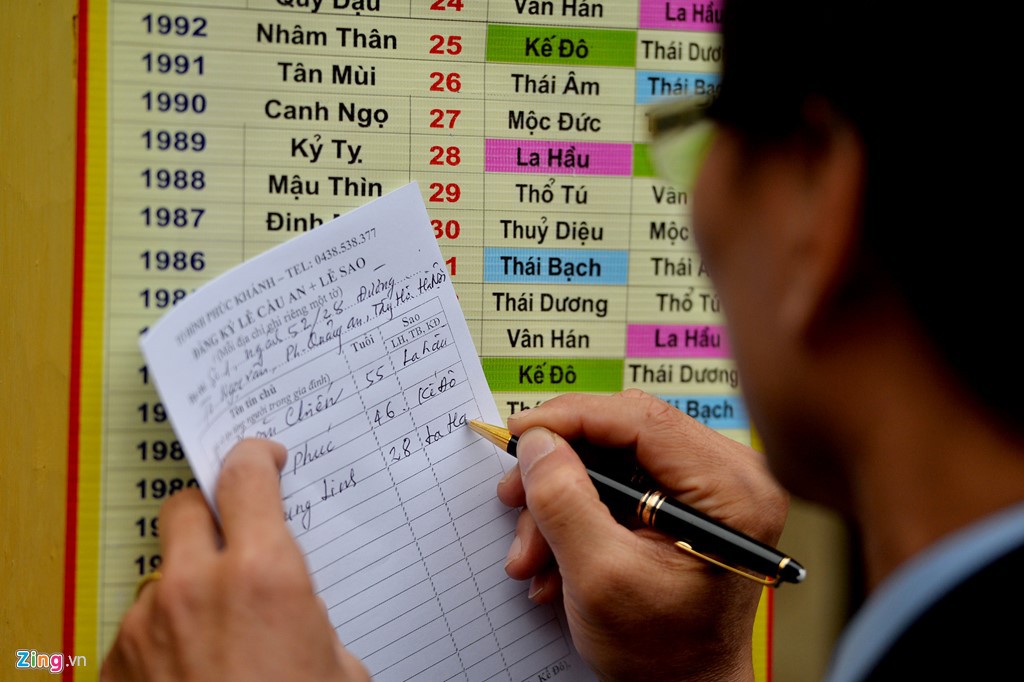 Quý Dậu 24 Vân Hán La Hầu
1992 Nhâm Thân 25 Kế Đô Thái Dươ
1991 Tân Mùi 26 Thái Âm Thái Bạc
1990 Canh Ngọ 27 Mộc Đức
1989 Kỷ Tỵ 28 La Hầu
1988 Mậu Thìn 29 Thổ Tú Vân
1987 Đinh 30 Thuỷ Diệu Mộc
1986 1 Thái Bạch Thái
198 Thái Dương Thổ Tú
Vân Hán La Hầu
1 Kế Đô Thái Dương
19 Bạch
198
1980
19
19
ĐÌNH PHÚC KHÁNH – TEL: 0438.538.377
ĐĂNG KÝ LỄ CẦU AN + LỄ SAO
(Mỗi địa chỉ ghi riêng một tờ)
52/28 Đường
Ph. Quảng An, Tây Hồ, Hà Nội
Tên tín chủ Tuổi Sao
người trong gia đình) LH, TB, KĐ
Chiên 55 La hầu
Phúc 46 Kế Đô
ung Linh 28 La Hầ
Kế Đô:
Zing.vn